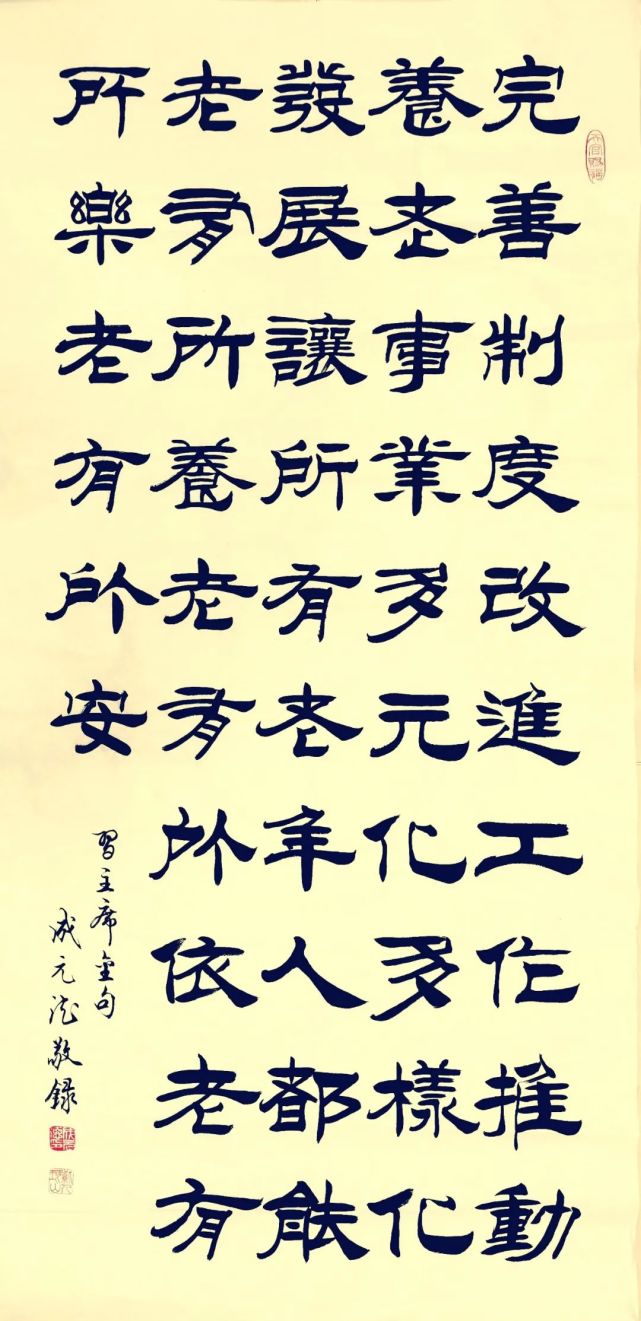 完善制度改進工作推動
養老事業多元化多樣化
發展讓所有老年人都能
老有所養老有所依老有
所樂老有所安
習主席金句
成元 敬錄